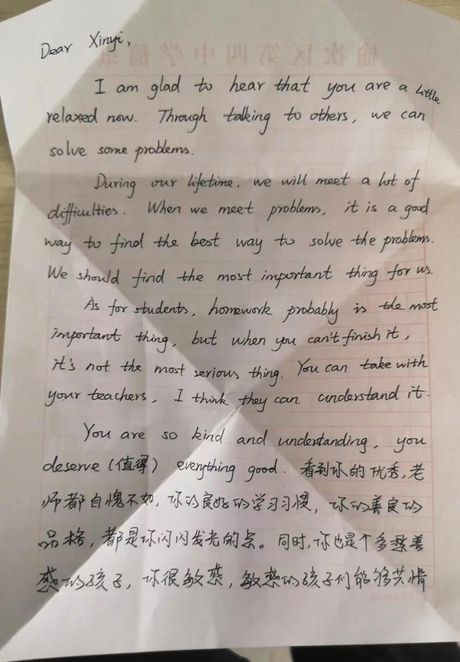 榆次区第四中学稿纸
Dear Xinyi,
I am glad to hear that you are a little
relaxed now. Through talking to others, we can
solve some problems.
During our lifetime, we will meet a lot of
difficulties. When we meet problems, it is a good
way to find the best way to solve the problems.
We should find the most important thing for us.
As for students, homework probably is the most
important thing, but when you can't finish it,
it's not the most serious thing. You can take with
your teachers, I think they can understand it.
You are so kind and understanding, you
deserve (值得) everything good. 看到你的优秀, 老
师都自愧不如, 你的良好的学习习惯, 你的善良的
品格, 都是你闪闪发光的点。同时, 你也是个多愁善
感的孩子, 你很敏感, 敏感的孩子们能够共情